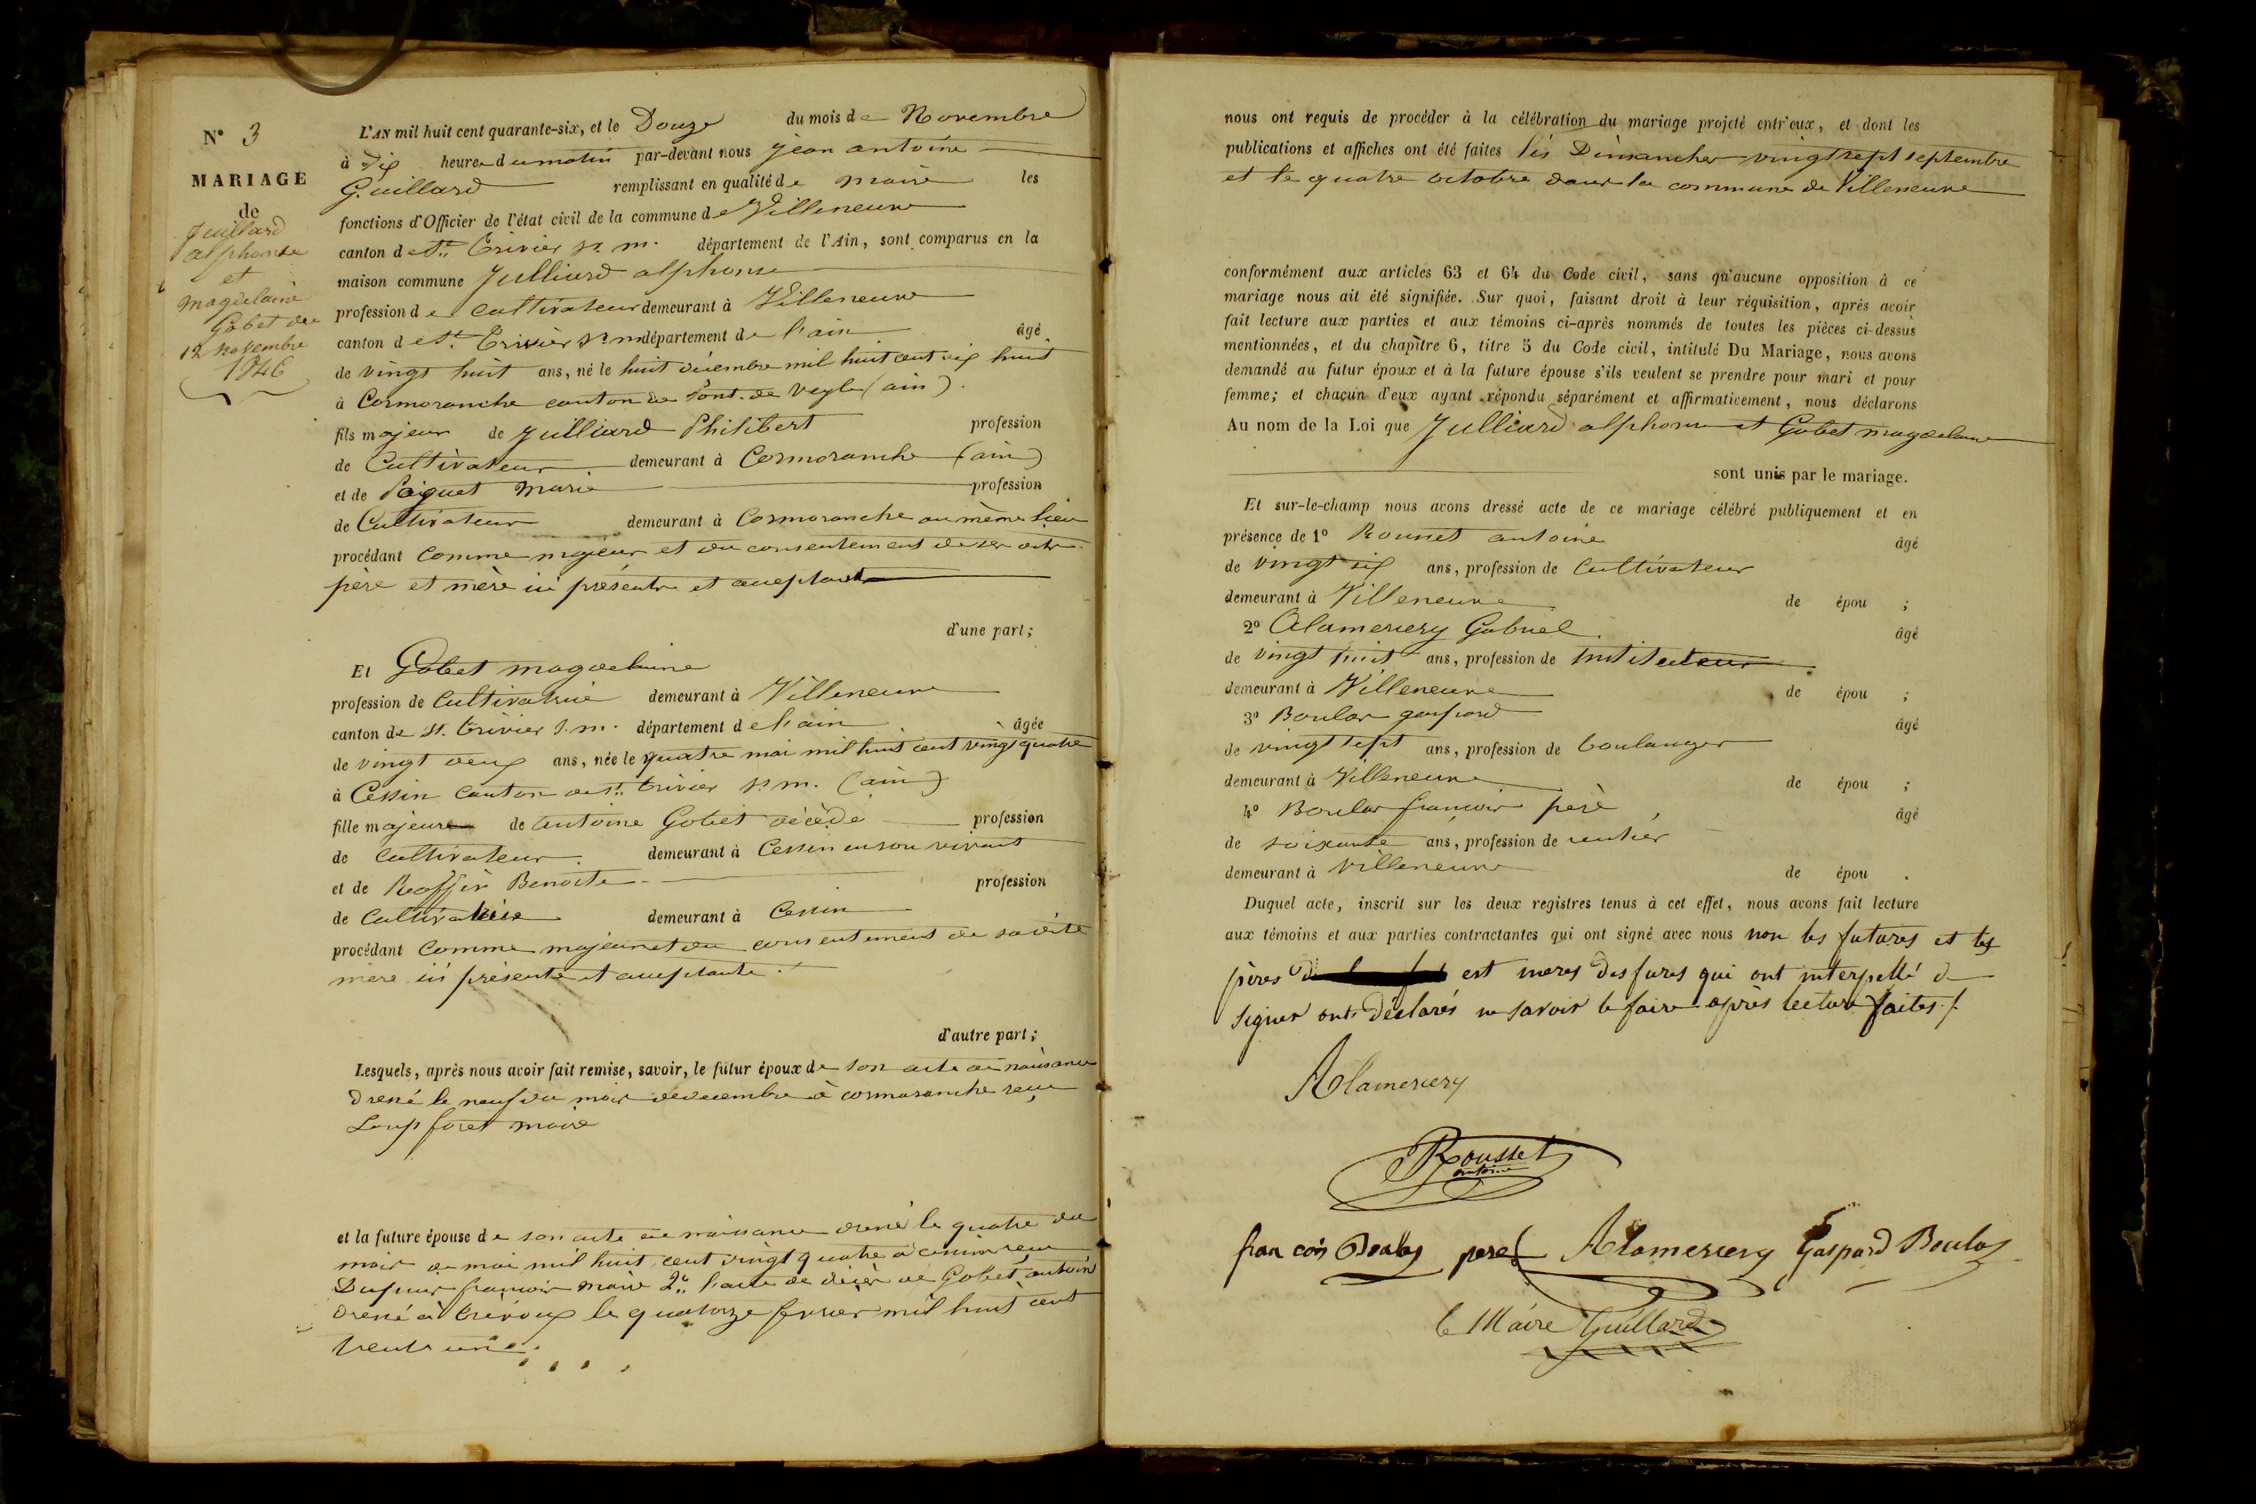 N° 3
MARIAGE
de
Juillard
alphonse
et
magdelaine
Gobet du
12 novembre
1846
L'AN mil huit cent quarante-six, et le Douze du mois de Novembre
à dix heure du matin par-devant nous jean antoine
Guillard remplissant en qualité de maire les
fonctions d'Officier de l'état civil de la commune de Villeneuve
canton de St. Trivier s. m. département de l'Ain, sont comparus en la
maison commune Julliard alphonse
profession de cultivateur demeurant à Villeneuve
canton de St. Trivier s. m département de l'ain âgé
de vingt huit ans, né le huit décembre mil huit cent dix huit
à Cormoranche canton de Pont-de Veyle (ain).
fils majeur de Julliard Philibert profession
de Cultivateur demeurant à Cormoranche (ain)
et de Paquet Marie profession
de Cultivateur demeurant à Cormoranche au même lieu
procédant comme majeur et du consentement de ses dits
père et mère ici présents et acceptant
d'une part;
Et Gobet magdelaine
profession de Cultivatrice demeurant à Villeneuve
canton de St. Trivier s. m. département de l'ain âgée
de vingt deux ans, née le quatre mai mil huit cent vingt quatre
à Cessin canton de St. Trivier s. m. (ain)
fille majeure de antoine Gobet décédé profession
de Cultivateur demeurant à Cessin en son vivant
et de Benoite profession
de Cultivatrice demeurant à Cessin
procédant comme majeur et du consentement de sa dite
mère ici présente et acceptante
d'autre part;
Lesquels, après nous avoir fait remise, savoir, le futur époux de son acte de naissance
dressé le neuf du mois de decembre à cormoranche
Loup foret maire
et la future épouse de son acte de naissance dressé le quatre du
mois de mai mil huit cent vingt quatre à
françois maire 2° l'acte de décès de Gobet antoine
à trévoux le quatorze fevrier mil huit cent
trente un
nous ont requis de procéder à la célébration du mariage projeté entr'eux, et dont les
publications et affiches ont été faites les Dimanches vingt sept septembre
et le quatre octobre dans la commune de Villeneuve
conformément aux articles 63 et 64 du Code civil, sans qu'aucune opposition à ce
mariage nous ait été signifiée. Sur quoi, faisant droit à leur réquisition, après avoir
fait lecture aux parties et aux témoins ci-après nommés de toutes les pièces ci-dessus
mentionnées, et du chapitre 6, titre 5 du Code civil, intitulé Du Mariage, nous avons
demandé au futur époux et à la future épouse s'ils veulent se prendre pour mari et pour
femme; et chacun d'eux ayant répondu séparément et affirmativement, nous déclarons
Au nom de la Loi que Julliard alphonse et Gobet magdelaine
sont unis par le mariage.
Et sur-le-champ nous avons dressé acte de ce mariage célébré publiquement et en
présence de 1° Rousset antoine âgé
de vingt six ans, profession de Cultivateur
demeurant à Villeneuve de épou ;
2° Alamercery Gabriel âgé
de vingt huit ans, profession de Instituteur
demeurant à Villeneuve de épou ;
3° Boulas gaspard âgé
de vingt sept ans, profession de boulanger
demeurant à Villeneuve de épou ;
4° Boulas françois père âgé
de soixante ans, profession de rentier
demeurant à Villeneuve de épou .
Duquel acte, inscrit sur les deux registres tenus à cet effet, nous avons fait lecture
aux témoins et aux parties contractantes qui ont signé avec nous non les futures et les
pères est meres des furs qui ont interpellé de
signer onts déclarés ne savoir le faire après lecture faites
Alamercery
Rousset
antoine
fran cois Boulas pere Alamercery Gaspard Boulas
le Maire Guillard